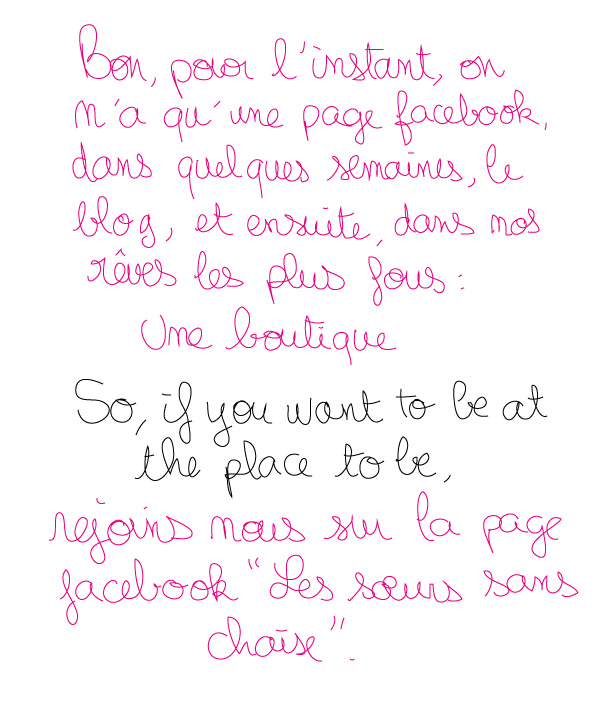 Bon, pour l'instant, on
n'a qu'une page facebook,
dans quelques semaines, le
blog, et ensuite, dans nos
rêves les plus fous :
Une boutique
So, if you want to be at
the place to be,
rejoins nous sur la page
facebook "Les sœurs sans
chaise".